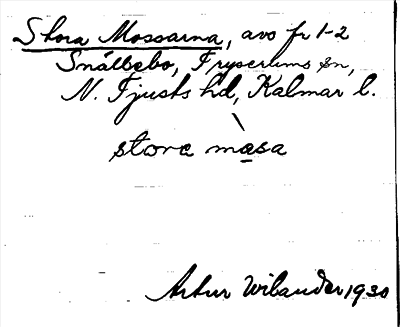 Stora Mossarna, avs fr 1-2
Snållebo, Tryserums sn,
N. Tjusts hd, Kalmar l.
stora mɑsa
Artur Wilander 1930